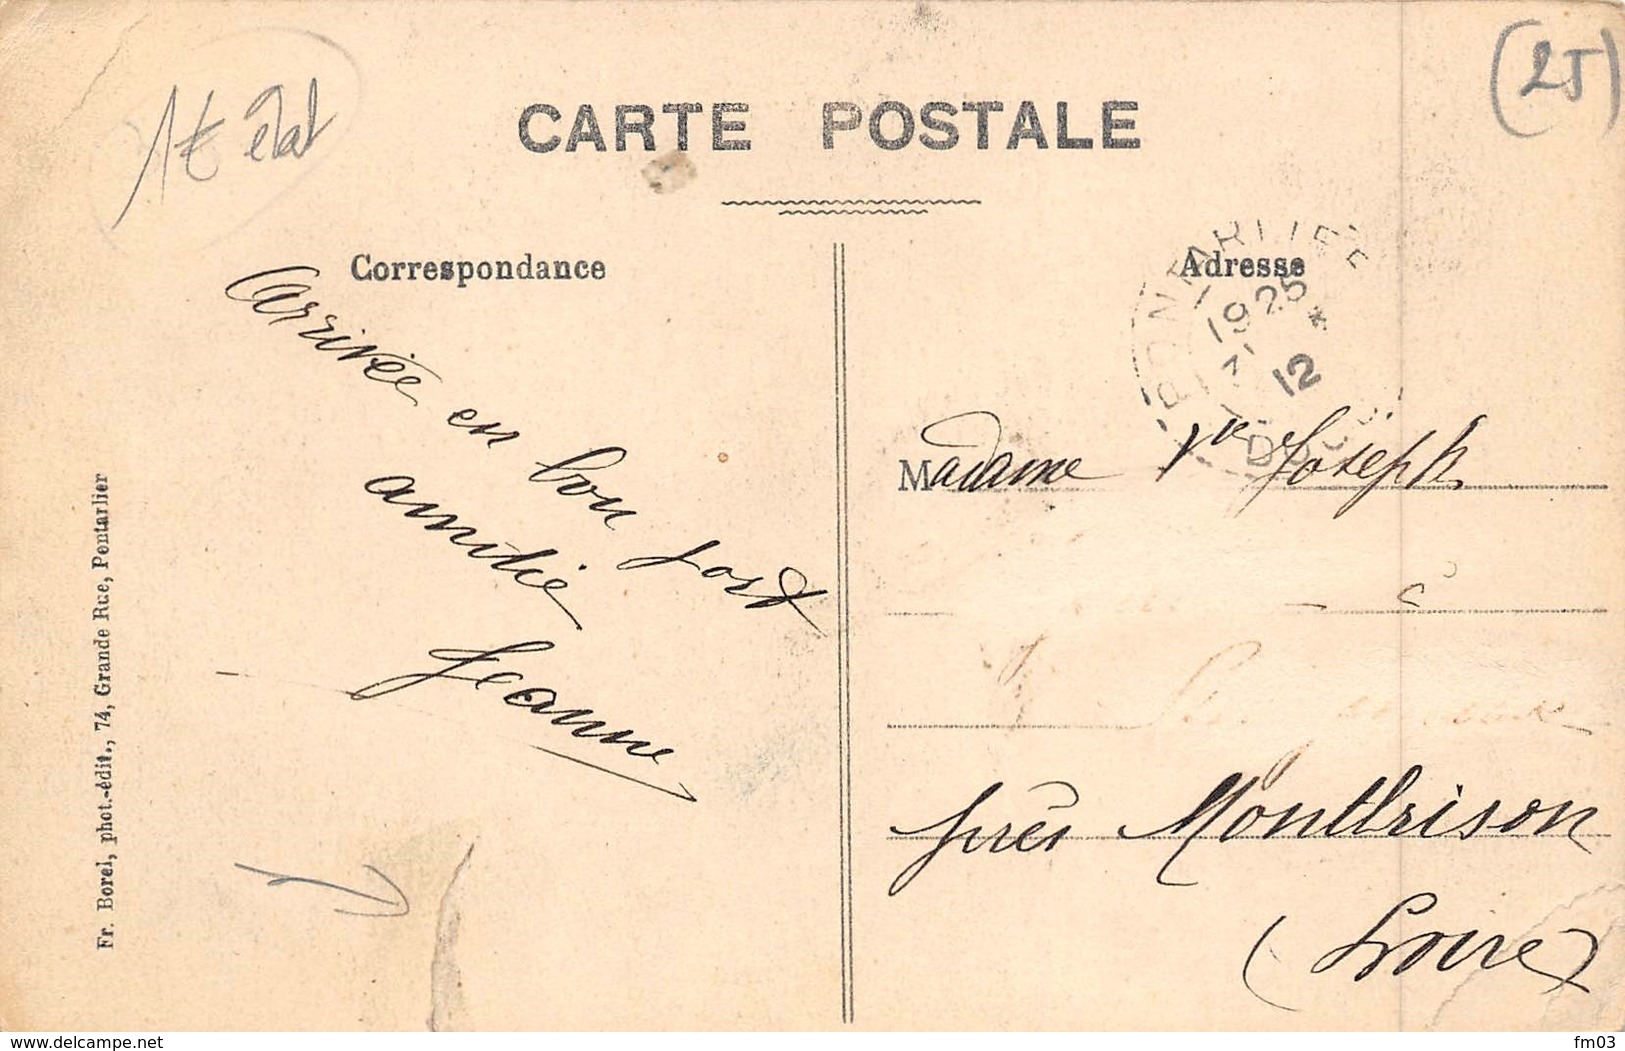 1€ état
(25)
CARTE POSTALE
Correspondance
Adresse
1925
12
DOUBS
Arrivée en bon port
amitié
Jeanne
Madame Vve Joseph
à
près Montbrison
(Loire)
Fr. Borel, phot.-édit., 74, Grande Rue, Pontarlier
www.delcampe.net
fm03